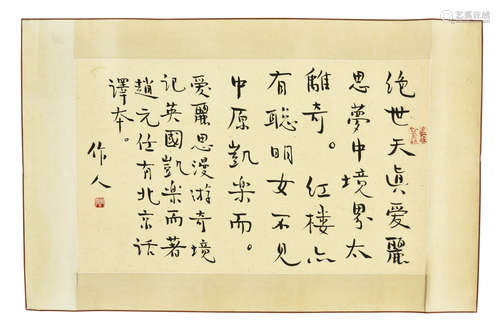 绝世天真爱麗
思夢中境界太
離奇。红楼亦
有聪明女不見
中原凯樂而。
爱麗思漫游奇境
记英國凯樂而著
趙元任有北京话
譯本。
作人